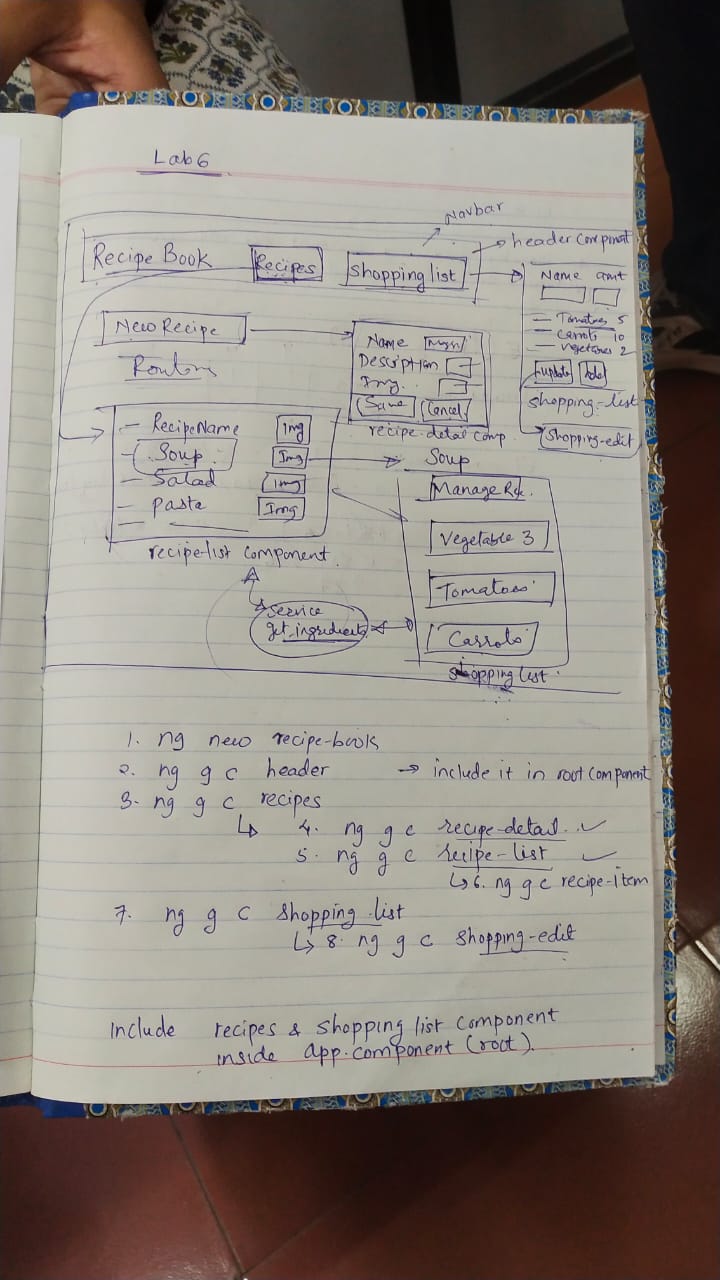 Lab 6
Navbar
Recipe Book
Recipes
Shopping list
header component
Name amt
Tomatoes 5
Carrots 10
Vegetables 2
update
shopping-list
Shopping-edit
New Recipe
Name
Description
Img.
Save
Cancel
recipe-detail comp.
Routing
RecipeName Img
Soup Img
Salad Img
Pasta Img
recipe-list component.
Soup
Manage
Vegetable 3
Tomatoes
Carrots
shopping list.
Service
get ingredients
1. ng new recipe-book
2. ng g c header → include it in root component
3. ng g c recipes
↳ 4. ng g c recipe-detail. ✓
5. ng g c recipe-list ✓
↳ 6. ng g c recipe-item
7. ng g c shopping-list
↳ 8. ng g c shopping-edit
Include recipes & shopping list component
inside app.component (root).